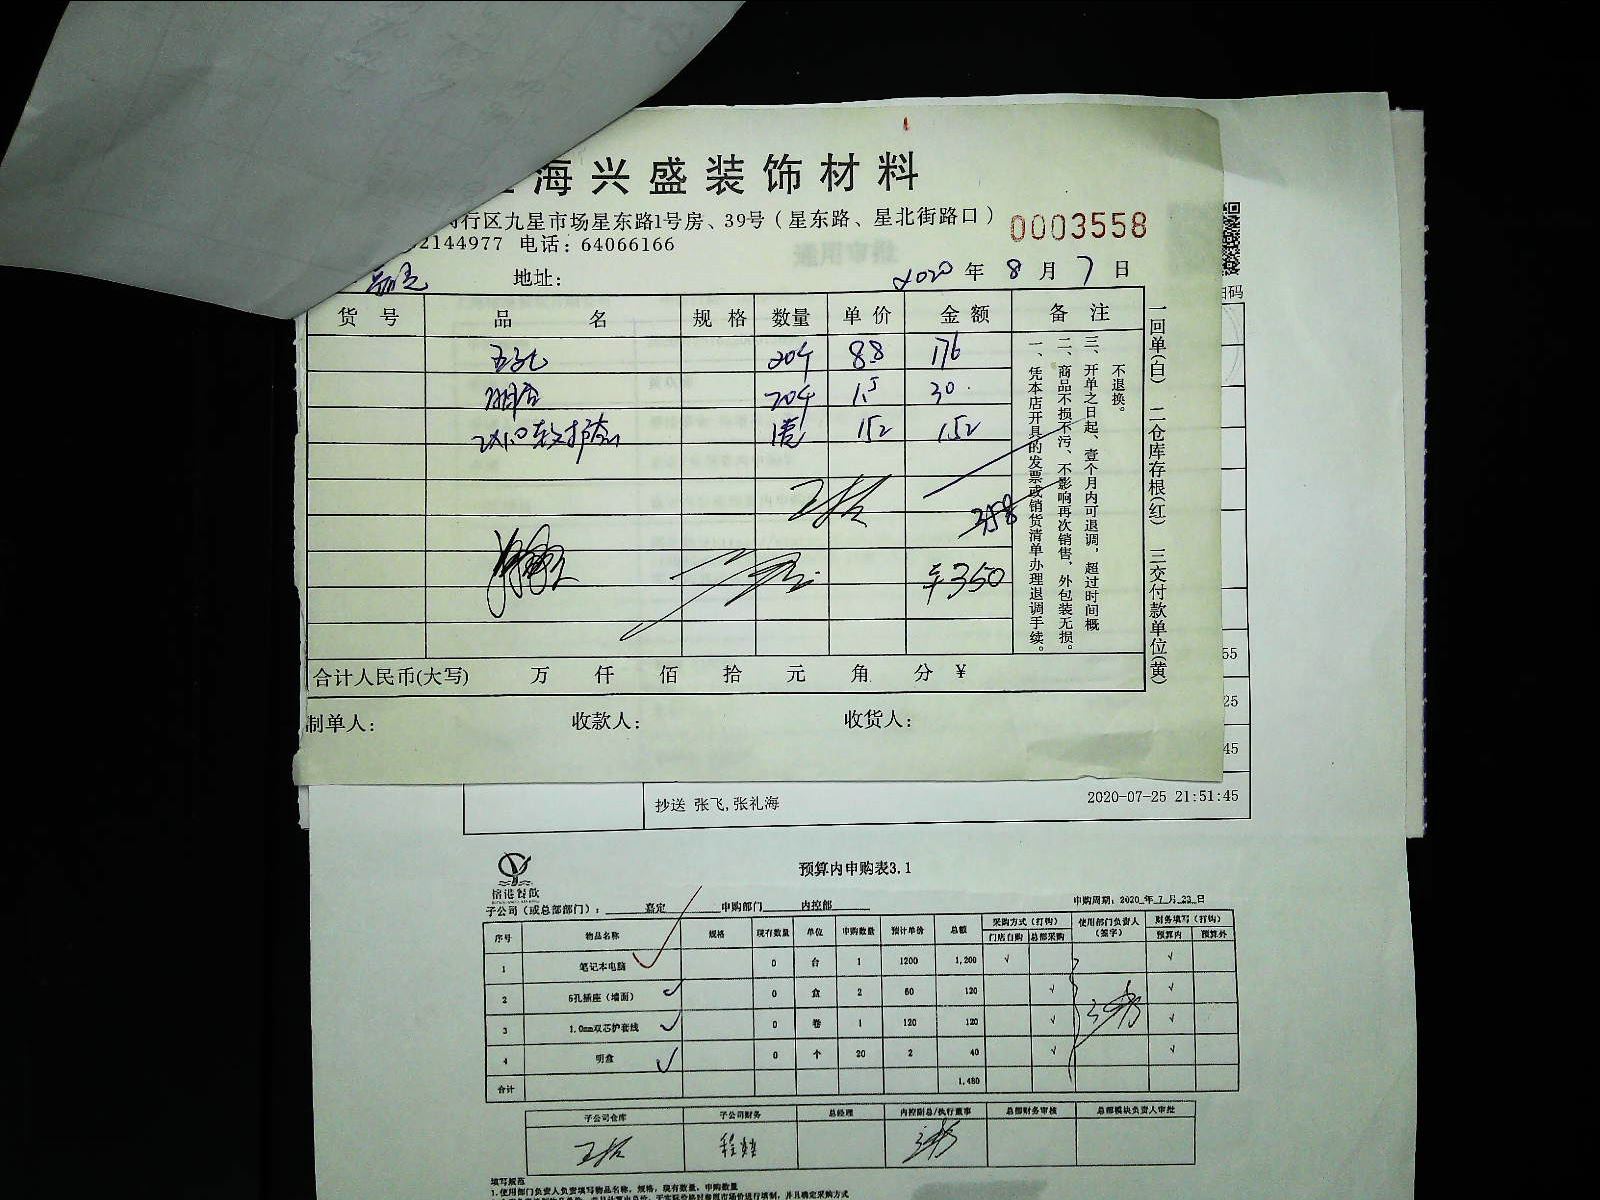 海兴盛装饰材料
行区九星市场星东路1号房、39号（星东路、星北街路口）
0003558
2144977 电话：64066166
通用审批
地址：
2020 年 8 月 7 日
货 号 品 名 规 格 数量 单 价 金 额 备 注
五孔 20个 8.8 176
明盒 20个 1.5 30.
2X1.0 软护套 1卷 152 152
358
¥350
一、凭本店开具的发票或销货清单办理退调手续。
二、商品不损不污、不影响再次销售，外包装无损。
三、开单之日起、壹个月内可退调，超过时间概
不退换。
一回单(白) 二仓库存根(红) 三交付款单位(黄)
合计人民币(大写) 万 仟 佰 拾 元 角 分 ¥
制单人： 收款人： 收货人：
扫码
55
25
45
抄送 张飞,张礼海 2020-07-25 21:51:45
预算内申购表3.1
子公司（或总部部门）： 嘉定 申购部门 内控部 申购周期：2020 年 7 月 23 日
序号 物品名称 规格 现有数量 单位 申购数量 预计单价 总额 采购方式（打钩） 使用部门负责人（签字） 财务填写（打钩）
门店自购 总部采购 预算内 预算外
1 笔记本电脑 0 台 1 1200 1,200 √ √
2 5孔插座（墙面） 0 盒 2 60 120 √ √
3 1.0mm双芯护套线 0 卷 1 120 120 √ √
4 明盒 0 个 20 2 40 √ √
合计 1,480
子公司仓库 子公司财务 总经理 内控副总/执行董事 总部财务审核 总部模块负责人审批
填写规范
1.使用部门负责人负责填写物品名称，规格，现有数量，申购数量